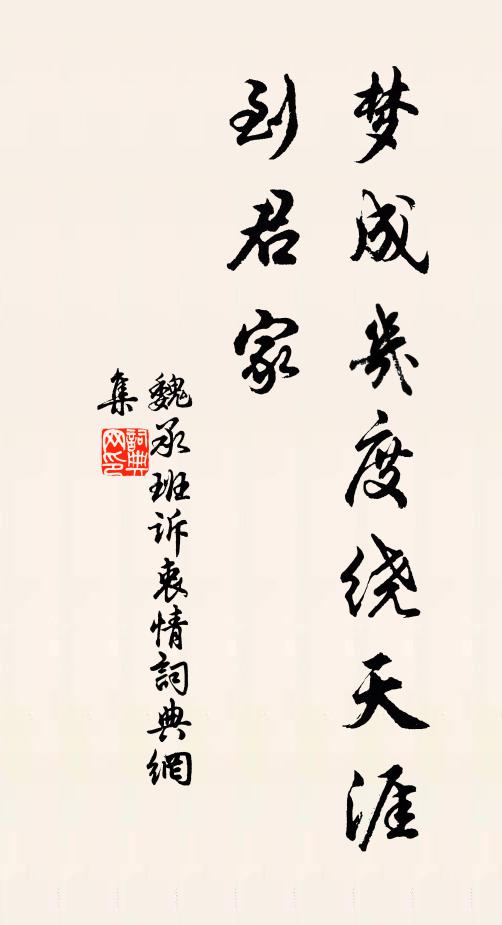 梦成幾度绕天涯
到君家
魏承班诉衷情詞典網
集
詞典
网印